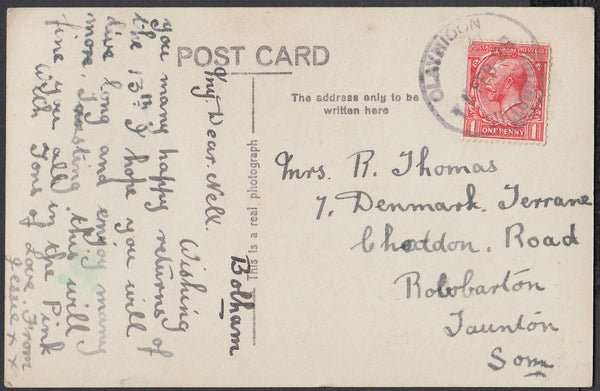 POST CARD
The address only to be
written here
This is a real photograph
CLAYHIDON
POSTAGE REVENUE
1 ONE PENNY 1
Bolham
My Dear Nell.
Wishing
you many happy returns of
the 13th I hope you will
live long and enjoy many
more. Trusting this will
fine you all in the Pink
With Tons of Love. From
Jessie x x
Mrs. R. Thomas
7, Denmark. Terrane
Cheddon. Road
Robobarton
Taunton
Som